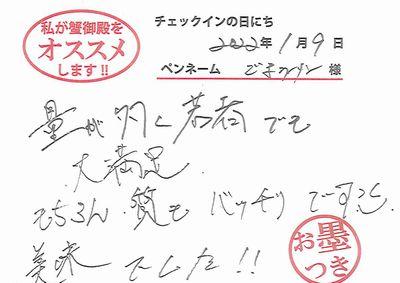 私が蟹御殿を
オススメ
します!!
チェックインの日にち
2022年1月9日
ペンネーム 様
量が多く若者でも
大満足
もちろん 質も バッチリ です。
美味でした!!
お墨
つき